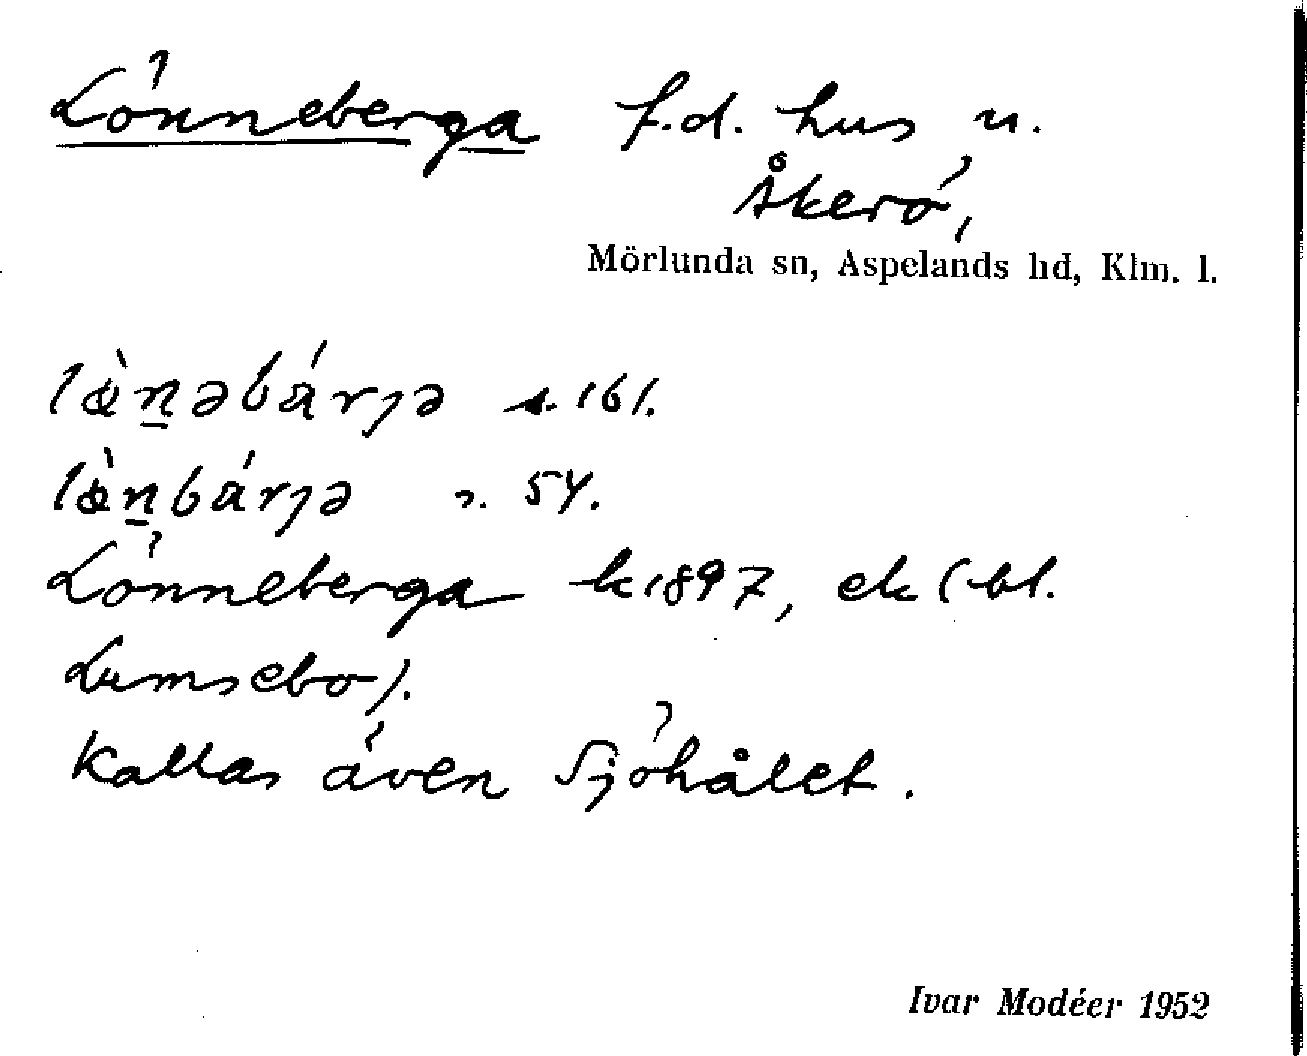 Lönneberga f.d. hus u.
Åkerö,
Mörlunda sn, Aspelands hd, Klm. l.
lὰn̲əbárȷə s. 161.
lὰn̲bárȷə s. 54.
Lönneberga k 1897, ek (bl.
Lumsebo).
Kallas även Sjöhålet.
Ivar Modéer 1952